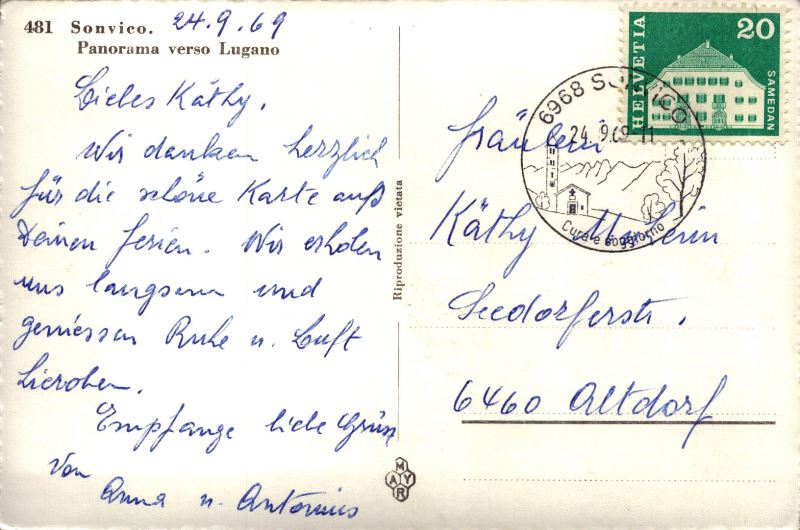 481 Sonvico. 24.9.69
Panorama verso Lugano
Liebes Käthy,
Wir danken herzlich
für die schöne Karte auß
Deinen Ferien. Wir erholen
uns langsam und
geniessen Ruhe u. Luft
hieroben.
Empfange liebe Grüsse
von
Anna u. Antonius
Riproduzione vietata
MAYR
HELVETIA
20
SAMEDAN
6968 SONVICO
24.9.69-11
Cura e soggiorno
Fräulein
Käthy
Seedorferstr.
6460 Altdorf